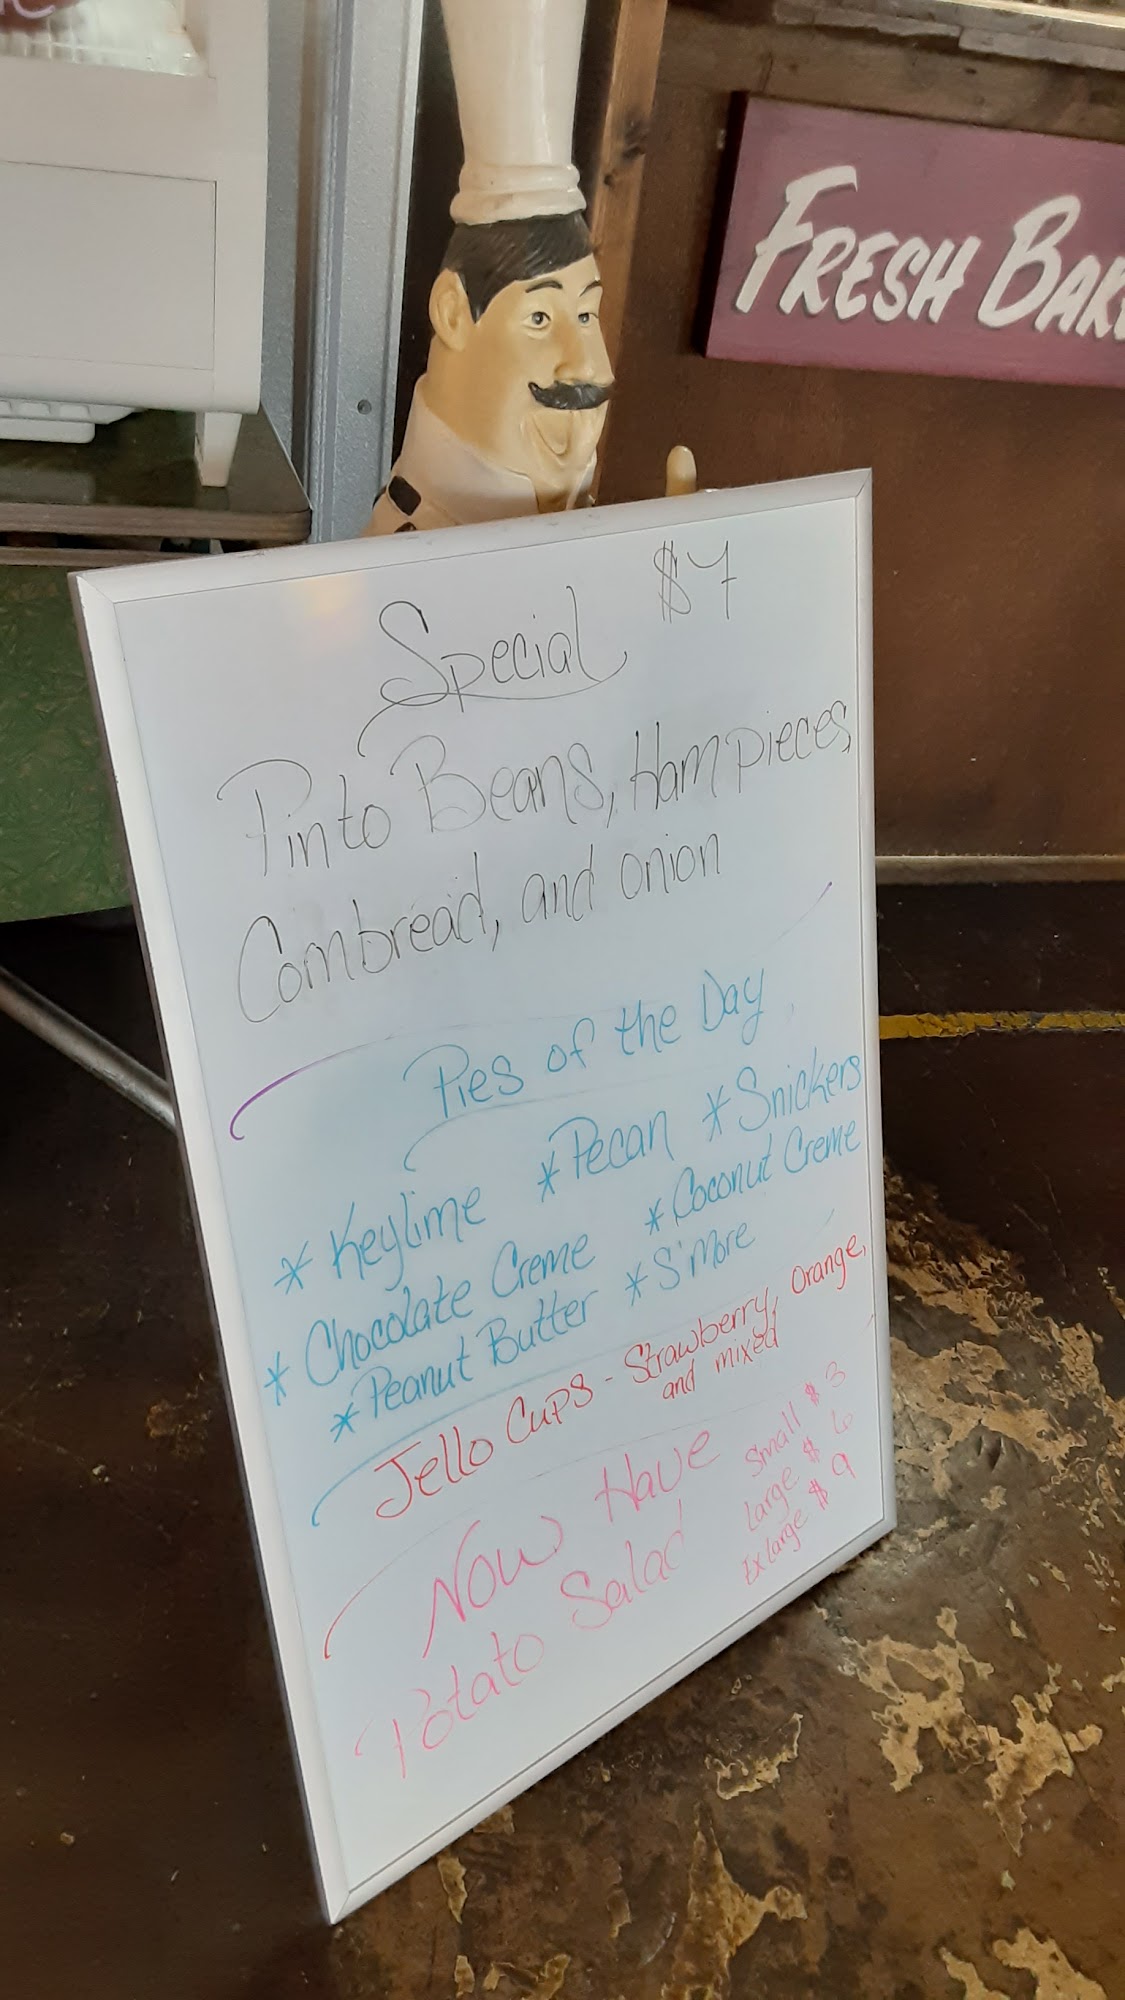 FRESH BAK
Special $7
Pinto Beans, Ham pieces,
Cornbread, and onion
Pies of the Day
* Keylime * Pecan * Snickers
* Chocolate Creme * Coconut Creme
* Peanut Butter * S'More
Jello Cups - Strawberry, Orange,
and mixed
Now Have
Potato Salad
Small $3
Large $6
Ex large $9